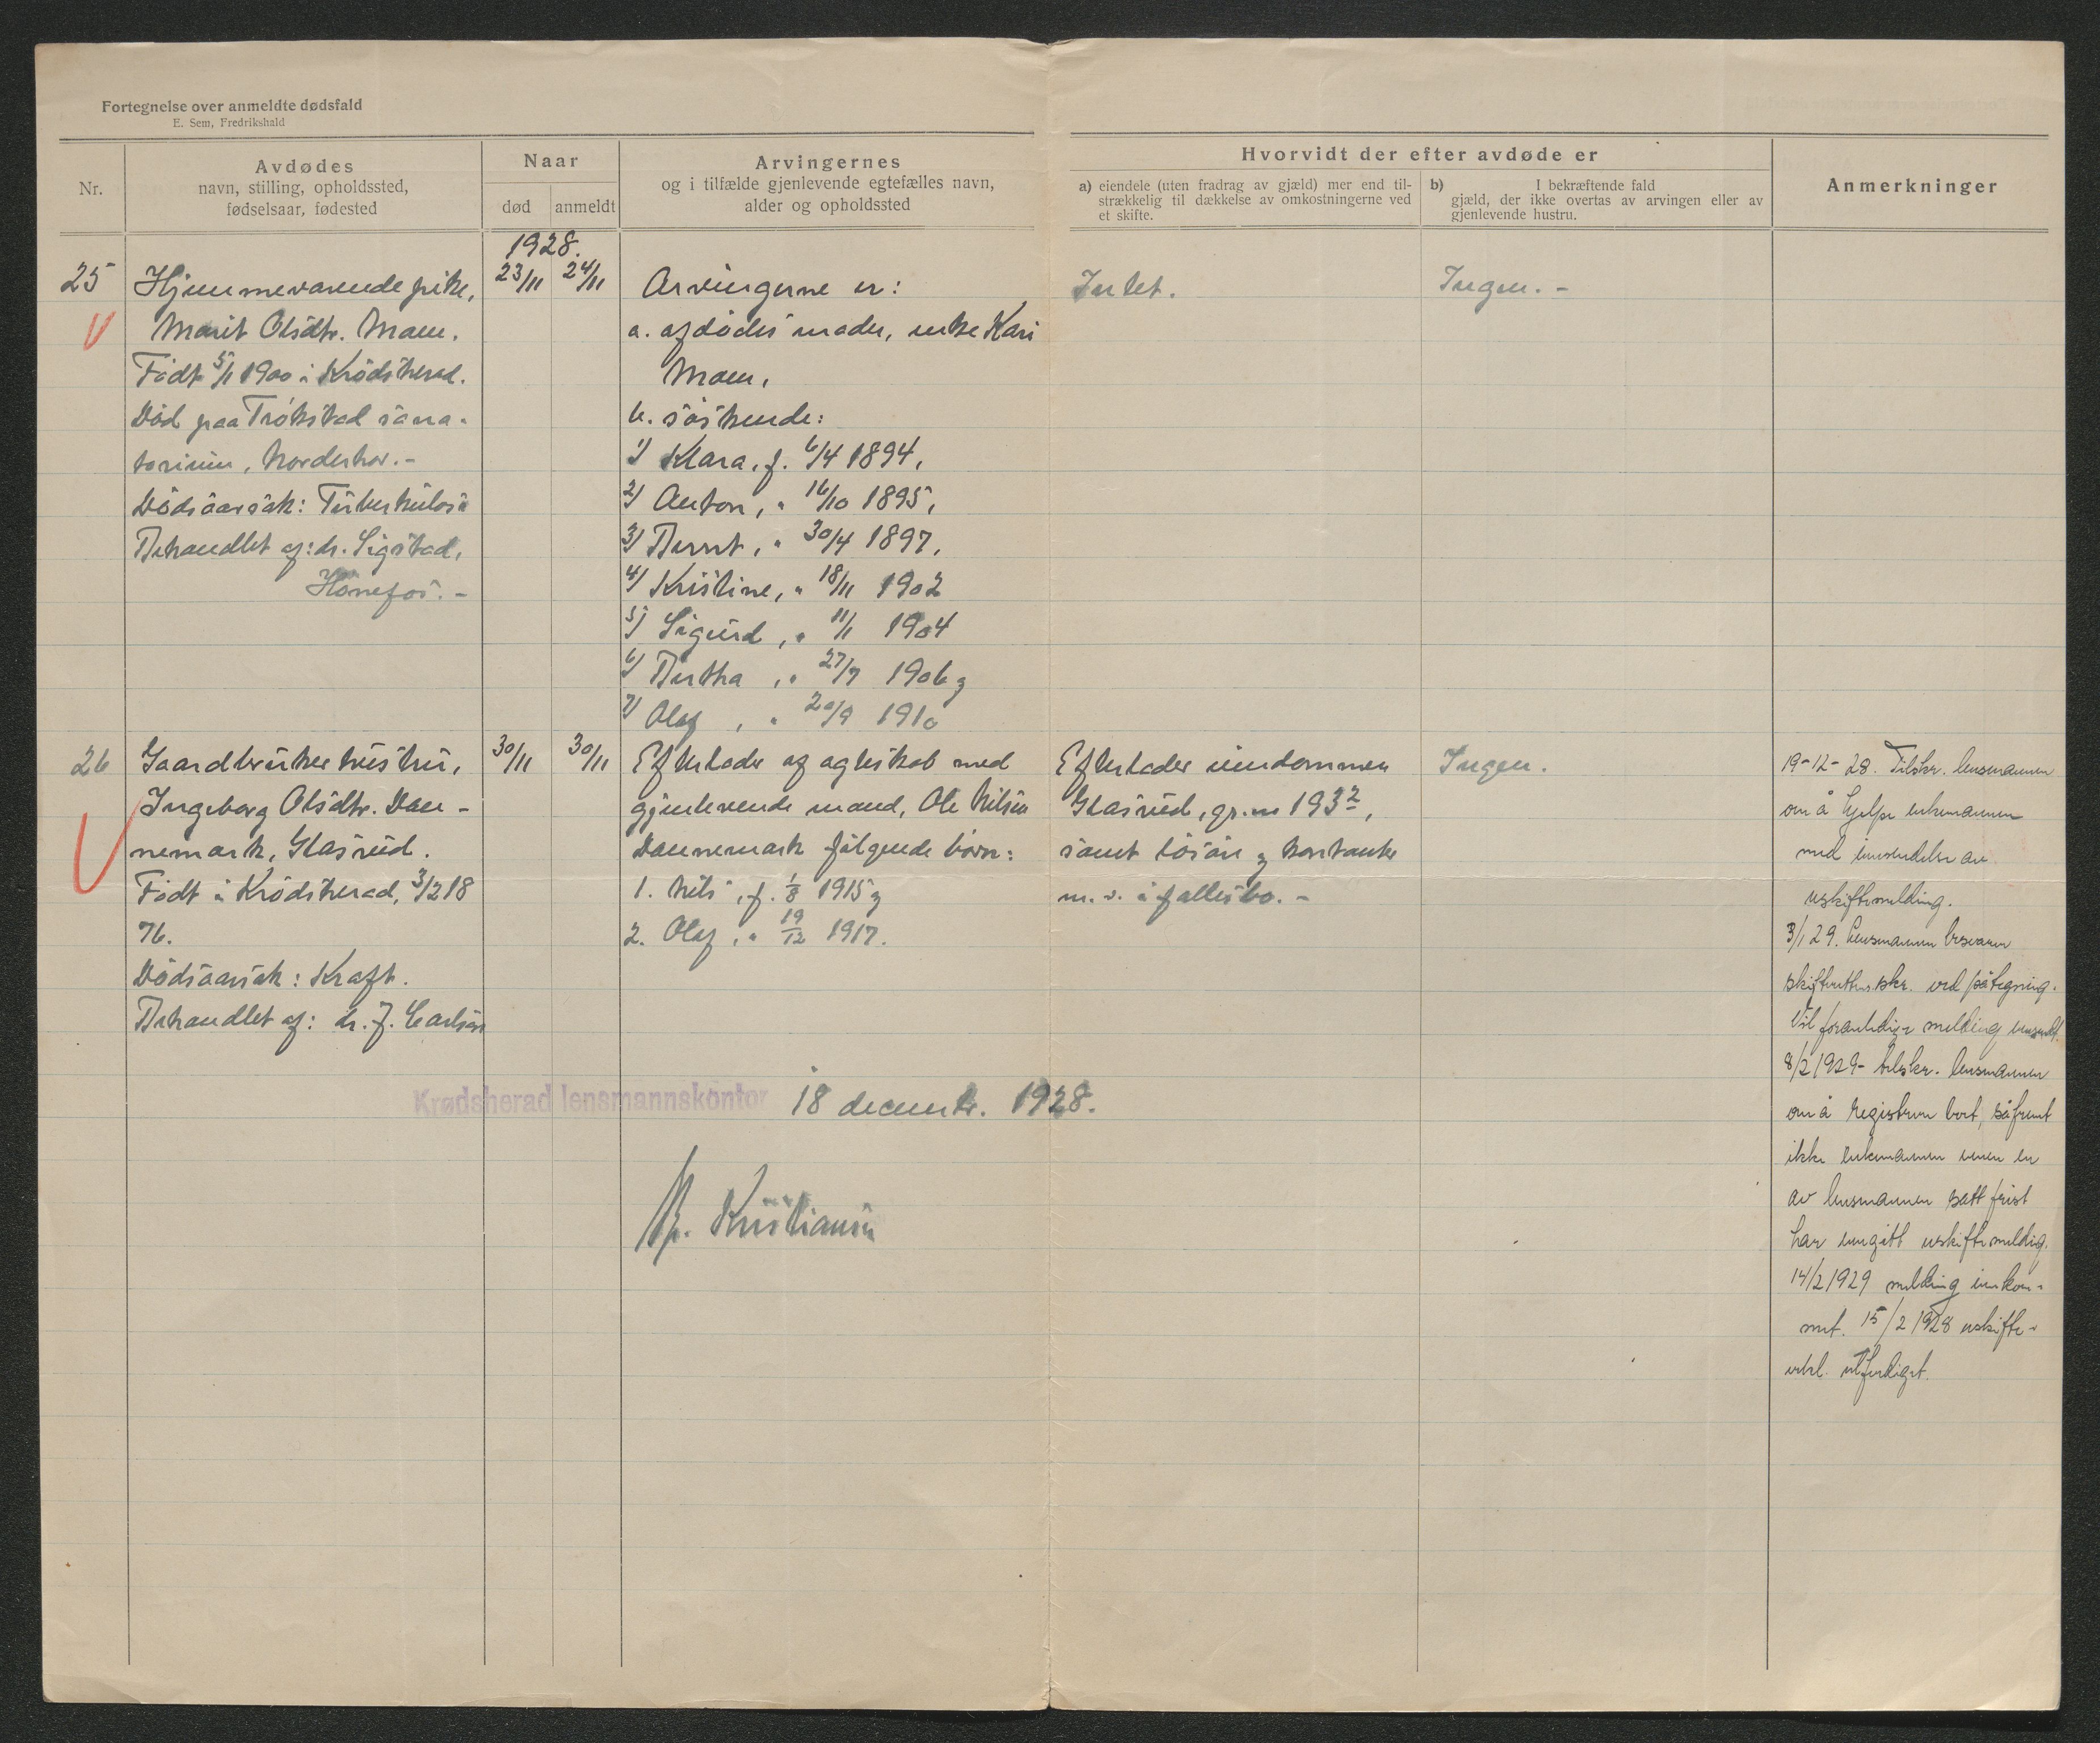 Fortegnelse over anmeldte dødsfald
E. Sem, Fredrikshald
Nr.
Avdødes
navn, stilling, opholdssted,
fødselsaar, fødested
Naar
død
anmeldt
Arvingernes
og i tilfælde gjenlevende egtefælles navn,
alder og opholdssted
Hvorvidt der efter avdøde er
a) eiendele (uten fradrag av gjæld) mer end til-
strækkelig til dækkelse av omkostningerne ved
et skifte.
b) I bekræftende fald
gjæld, der ikke overtas av arvingen eller av
gjenlevende hustru.
Anmerkninger
1928.
25
Hjemmeværende pike,
Marit Olsdtr. Moen.
Født 5/1 1900 i Krødsherad.
Død paa Trøkstad sana-
torium, Norderhov. -
Dødsaarsak: Tuberkulose
Behandlet af: dr. Sigstad,
Hønefos. -
23/11
24/11
Arvingerne er:
a. afdødes moder, enke Kari
Moen,
b. søskende:
1) Klara, f. 6/4 1894,
2) Anton, " 16/10 1895,
3) Bernt, " 30/4 1897,
4) Kristine, " 18/11 1902
5) Sigurd, " 11/1 1904
6) Bertha, " 27/7 1906 og
7) Olaf, " 20/9 1910
Intet.
Ingen. -
26
Gaardbrukerhustru,
Ingeborg Olsdtr. Dan-
nemark, Glasrud.
Født i Krødsherad, 3/2 18
76.
Dødsaarsak: Kræft.
Behandlet af: dr. J. Carlsen
30/11
30/11
Efterlader af ægteskab med
gjenlevende mand, Ole Nilsen
Dannemark følgende børn:
1. Nils, f. 1/8 1915 og
2. Olaf, " 19/12 1917.
Efterlader eiendommen
Glasrud, gr. no 193 2,
samt løsøre og kontanter
m. v. i fællesbo. -
Ingen.
19-12-28. Tilskr. lensmannen
om å hjelpe enkemannen
med innsendelse av
uskiftemelding.
3/1 29. Lensmannen besvarer
skifterettens skr. ved påtegning.
Vil foranledige melding innsendt.
8/2 1929 - tilskr. lensmannen
om å registrere boet, såfremt
ikke enkemannen innen en
av lensmannen satt frist
har inngitt uskiftemelding.
14/2 1929 melding innkom-
met. 15/2 1928 uskifte-
utferdiget.
Krødsherad lensmannskontor 18 decembr. 1928.
Kristiansen